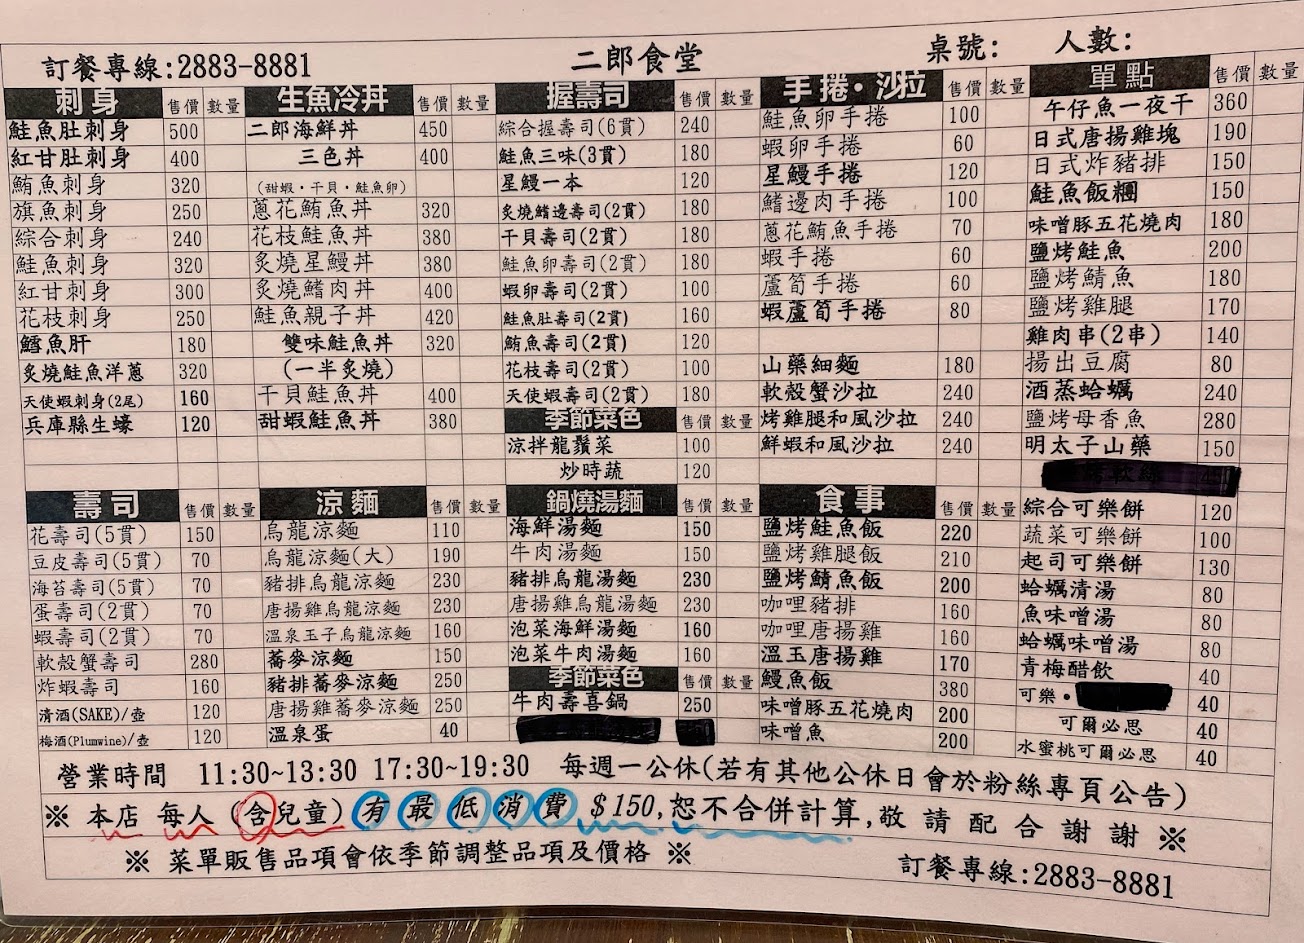 訂餐專線:2883-8881 二郎食堂 桌號: 人數:
刺身 售價 數量
鮭魚肚刺身 500
紅甘肚刺身 400
鮪魚刺身 320
旗魚刺身 250
綜合刺身 240
鮭魚刺身 320
紅甘刺身 300
花枝刺身 250
鱈魚肝 180
炙燒鮭魚洋蔥 320
天使蝦刺身(2尾) 160
兵庫縣生蠔 120
生魚冷丼 售價 數量
二郎海鮮丼 450
三色丼 400
(甜蝦·干貝·鮭魚卵)
蔥花鮪魚丼 320
花枝鮭魚丼 380
炙燒星鰻丼 380
炙燒鰭肉丼 400
鮭魚親子丼 420
雙味鮭魚丼 320
(一半炙燒)
干貝鮭魚丼 400
甜蝦鮭魚丼 380
握壽司 售價 數量
綜合握壽司(6貫) 240
鮭魚三味(3貫) 180
星鰻一本 120
炙燒鰭邊壽司(2貫) 180
干貝壽司(2貫) 180
鮭魚卵壽司(2貫) 180
蝦卵壽司(2貫) 100
鮭魚肚壽司(2貫) 160
鮪魚壽司(2貫) 120
花枝壽司(2貫) 100
天使蝦壽司(2貫) 180
季節菜色 售價 數量
涼拌龍鬚菜 100
炒時蔬 120
手捲·沙拉 售價 數量
鮭魚卵手捲 100
蝦卵手捲 60
星鰻手捲 120
鰭邊肉手捲 100
蔥花鮪魚手捲 70
蝦手捲 60
蘆筍手捲 60
蝦蘆筍手捲 80
山藥細麵 180
軟殼蟹沙拉 240
烤雞腿和風沙拉 240
鮮蝦和風沙拉 240
單點 售價 數量
午仔魚一夜干 360
日式唐揚雞塊 190
日式炸豬排 150
鮭魚飯糰 150
味噌豚五花燒肉 180
鹽烤鮭魚 200
鹽烤鯖魚 180
鹽烤雞腿 170
雞肉串(2串) 140
揚出豆腐 80
酒蒸蛤蠣 240
鹽烤母香魚 280
明太子山藥 150
綜合可樂餅 120
蔬菜可樂餅 100
起司可樂餅 130
蛤蠣清湯 80
魚味噌湯 80
蛤蠣味噌湯 80
青梅醋飲 40
可樂· 40
可爾必思 40
水蜜桃可爾必思 40
壽司 售價 數量
花壽司(5貫) 150
豆皮壽司(5貫) 70
海苔壽司(5貫) 70
蛋壽司(2貫) 70
蝦壽司(2貫) 70
軟殼蟹壽司 280
炸蝦壽司 160
清酒(SAKE)/壺 120
梅酒(Plumwine)/壺 120
涼麵 售價 數量
烏龍涼麵 110
烏龍涼麵(大) 190
豬排烏龍涼麵 230
唐揚雞烏龍涼麵 230
溫泉玉子烏龍涼麵 160
蕎麥涼麵 150
豬排蕎麥涼麵 250
唐揚雞蕎麥涼麵 250
溫泉蛋 40
鍋燒湯麵 售價 數量
海鮮湯麵 150
牛肉湯麵 150
豬排烏龍湯麵 230
唐揚雞烏龍湯麵 230
泡菜海鮮湯麵 160
泡菜牛肉湯麵 160
季節菜色 售價 數量
牛肉壽喜鍋 250
食事 售價 數量
鹽烤鮭魚飯 220
鹽烤雞腿飯 210
鹽烤鯖魚飯 200
咖哩豬排 160
咖哩唐揚雞 160
溫玉唐揚雞 170
鰻魚飯 380
味噌豚五花燒肉 200
味噌魚 200
營業時間 11:30~13:30 17:30~19:30 每週一公休(若有其他公休日會於粉絲專頁公告)
※ 本店 每人 (含兒童) 有最低消費 $150,恕不合併計算,敬請配合謝謝 ※
※ 菜單販售品項會依季節調整品項及價格 ※
訂餐專線:2883-8881